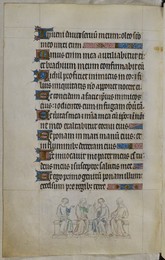 Inueni dauid seruum meum: oleo sco
meo unxi eum
Manus enim mea auxiliabitur ei: et
brachium meum confortabit eum
Nichil proficiet inimicus in eo: et fi
lius iniquitatis non apponet nocere ei
Et concidam a facie ipsius inimicos
eius: et odientes eum in fugam conuertā
Et ueritas mea et mīa mea cū ipso: et in
noīe meo exaltabitur cornu eius
Et ponam in mari manum eius: et
in fluminibus dexteram eius
Ipse inuocauit me pater meus es tu:
deus meus et susceptor salutis mee
Et ego primogenitū ponam illum:
excelsum pre regibus terre